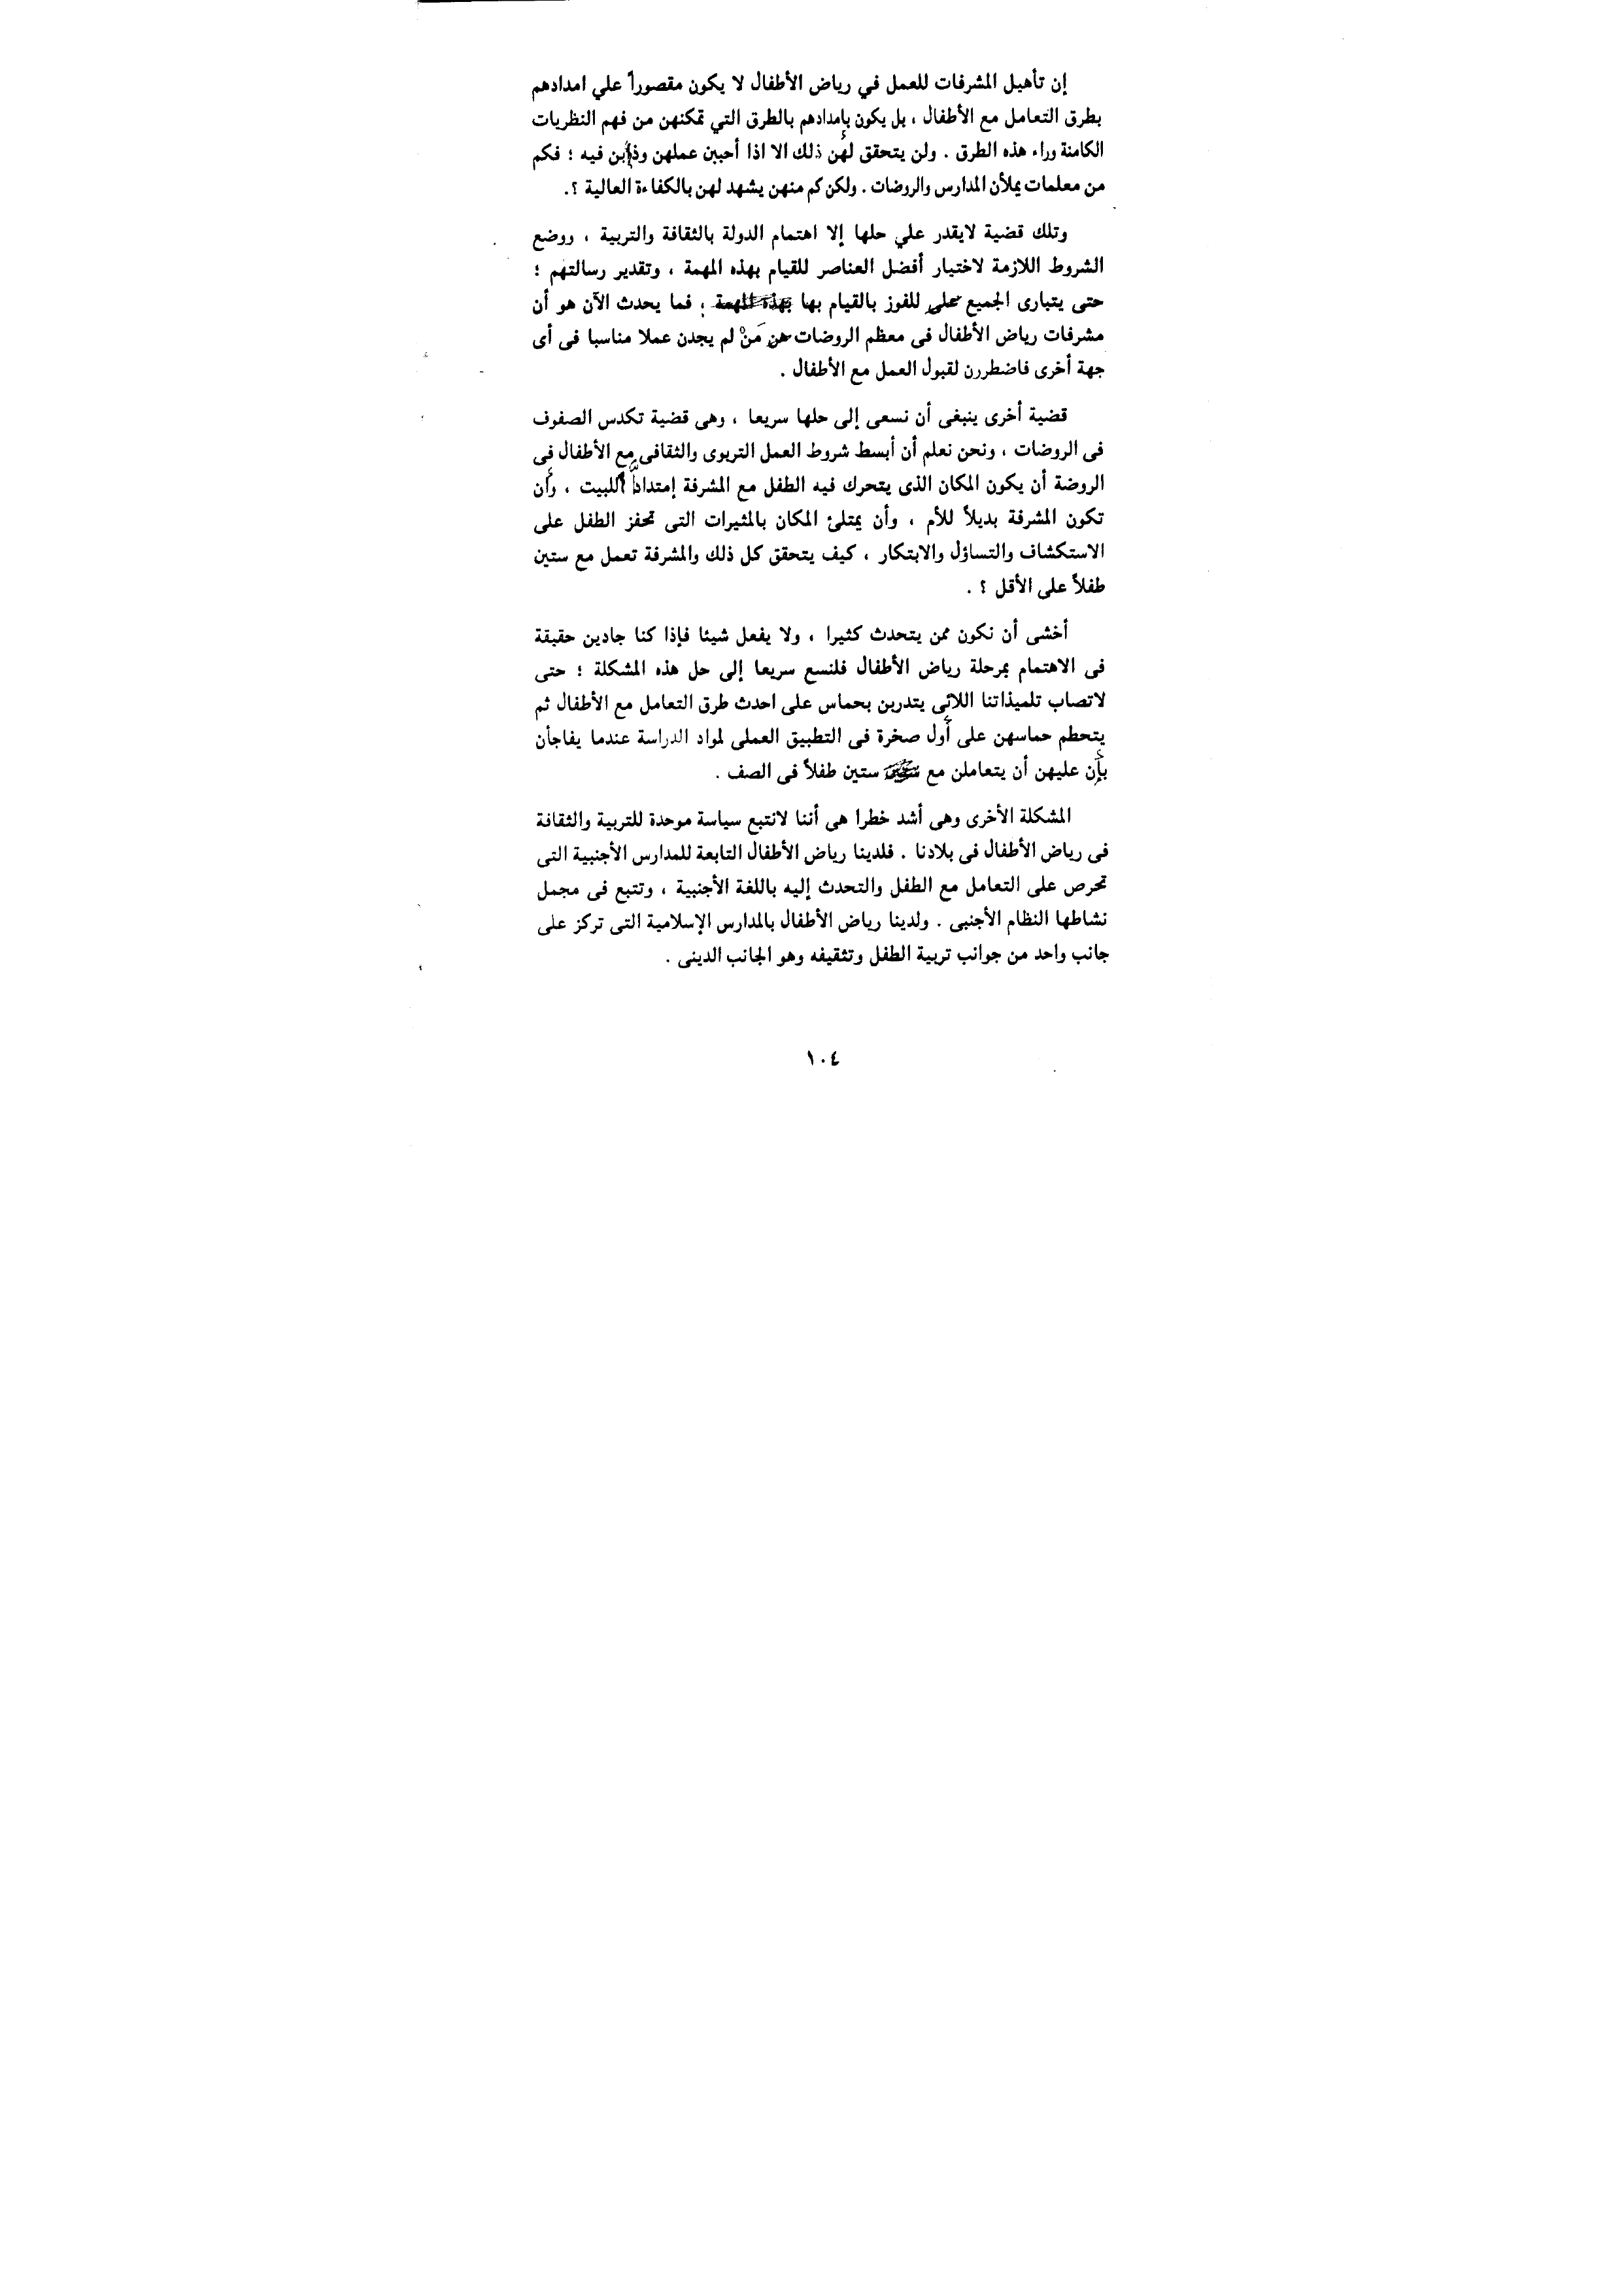 إن تأهيل المشرفات للعمل في رياض الأطفال لا يكون مقصوراً علي امدادهم
بطرق التعامل مع الأطفال ، بل يكون بإمدادهم بالطرق التي تمكنهن من فهم النظريات
الكامنة وراء هذه الطرق . ولن يتحقق لهن ذلك الا اذا أحببن عملهن وذبن فيه ؛ فكم
من معلمات يملأن المدارس والروضات . ولكن كم منهن يشهد لهن بالكفاءة العالية ؟.
وتلك قضية لايقدر علي حلها إلا اهتمام الدولة بالثقافة والتربية ، ووضع
الشروط اللازمة لاختيار أفضل العناصر للقيام بهذه المهمة ، وتقدير رسالتهم ؛
حتى يتبارى الجميع على للفوز بالقيام بها بهذه المهمة ؛ فما يحدث الآن هو أن
مشرفات رياض الأطفال فى معظم الروضات هن مَنْ لم يجدن عملا مناسبا فى أى
جهة أخرى فاضطررن لقبول العمل مع الأطفال .
قضية أخرى ينبغى أن نسعى إلى حلها سريعا ، وهى قضية تكدس الصفوف
فى الروضات ، ونحن نعلم أن أبسط شروط العمل التربوى والثقافى مع الأطفال فى
الروضة أن يكون المكان الذى يتحرك فيه الطفل مع المشرفة إمتداداً للبيت ، وأن
تكون المشرفة بديلاً للأم ، وأن يمتلئ المكان بالمثيرات التى تحفز الطفل على
الاستكشاف والتساؤل والابتكار ، كيف يتحقق كل ذلك والمشرفة تعمل مع ستين
طفلاً على الأقل ؟ .
أخشى أن نكون ممن يتحدث كثيرا ، ولا يفعل شيئا فإذا كنا جادين حقيقة
فى الاهتمام بمرحلة رياض الأطفال فلنسع سريعا إلى حل هذه المشكلة ؛ حتى
لاتصاب تلميذاتنا اللائى يتدربن بحماس على احدث طرق التعامل مع الأطفال ثم
يتحطم حماسهن على أول صخرة فى التطبيق العملى لمواد الدراسة عندما يفاجأن
بأن عليهن أن يتعاملن مع ستين طفلاً فى الصف .
المشكلة الأخرى وهى أشد خطرا هى أننا لانتبع سياسة موحدة للتربية والثقافة
فى رياض الأطفال فى بلادنا . فلدينا رياض الأطفال التابعة للمدارس الأجنبية التى
تحرص على التعامل مع الطفل والتحدث إليه باللغة الأجنبية ، وتتبع فى مجمل
نشاطها النظام الأجنبى . ولدينا رياض الأطفال بالمدارس الإسلامية التى تركز على
جانب واحد من جوانب تربية الطفل وتثقيفه وهو الجانب الدينى .
١٠٤